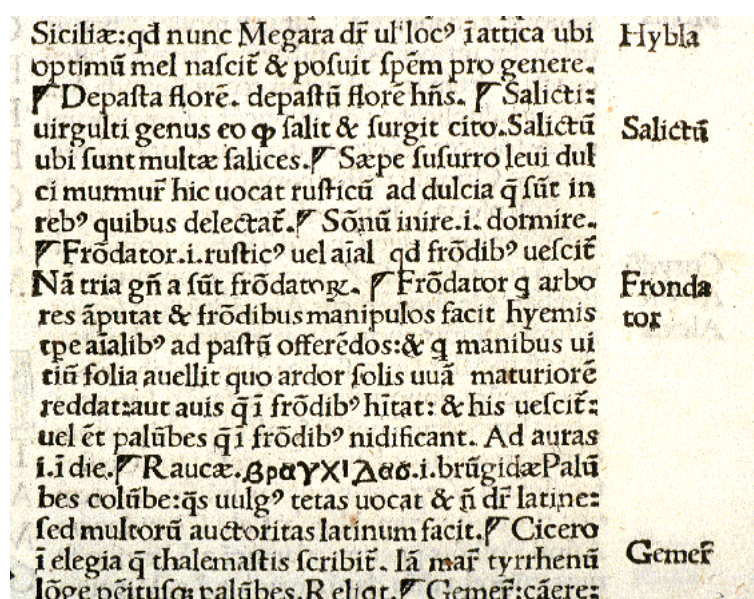 Siciliæ:qđ nunc Megara dr̄ ul' locꝰ ī attica ubi
Hybla
optimū mel naſcit̄ & poſuit ſpēm pro genere.
⸿ Depaſta florē. depaſtū florē hn̄s. ⸿ Salicti:
uirgulti genus eo ꝙ ſalit & ſurgit cito. Salictū
Salictū
ubi ſunt multæ ſalices. ⸿ Sæpe ſuſurro leui dul
ci murmur̄ hic uocat ruſticū ad dulcia q̄ ſūt in
rebꝰ quibus delectat̄. ⸿ Sōnū inire.i. dormire.
⸿ Frōdator.i.ruſticꝰ uel aīal qđ frōdibꝰ ueſcit̄
Nā tria gn̄a ſūt frōdatoꝝ. ⸿ Frōdator q arbo
Fronda
res āputat & frōdibus manipulos facit hyemis
tor
tp̄e aīalibꝰ ad paſtū offerēdos:& q manibus ui
tiū folia auellit quo ardor ſolis uuā maturiorē
reddat:aut auis q̄ ī frōdibꝰ hītat: & his ueſcit̄:
uel ēt palūbes q̄ ī frōdibꝰ nidificant. Ad auras
i.ī die. ⸿ Raucæ. βραγχιλαδ.i.brūgidæ Palū
bes colūbe:q̄s uulgꝰ tetas uocat & n̄ dr̄ latine:
ſed multorū auctoritas latinum facit. ⸿ Cicero
ī elegia q̄ thalemaſtis ſcribit̄. Iā mar̄ tyrrhenū
Gemer̄
lōge pēituſq; palūbes. Reliqt. ⸿ Gemer̄:cāere: